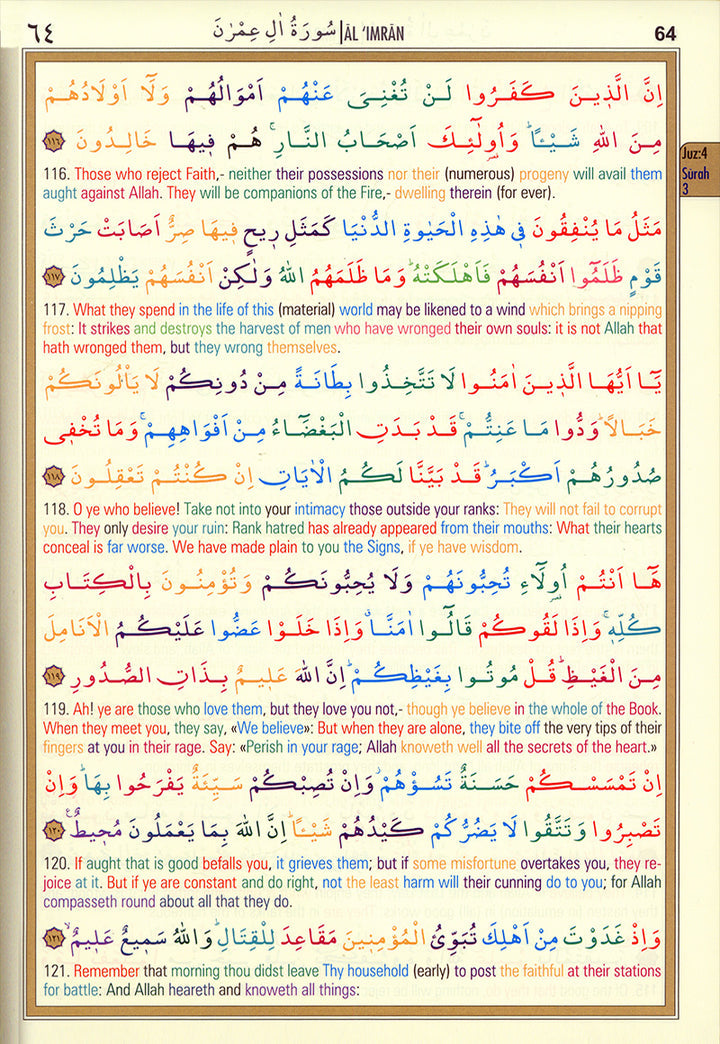 ٦٤ سُورَةُ اٰلِ عِمْرٰنَ | ĀL 'IMRĀN 64
اِنَّ الَّذ۪ينَ كَفَرُوا لَنْ تُغْنِيَ عَنْهُمْ اَمْوَالُهُمْ وَلَٓا اَوْلَادُهُمْ
مِنَ اللّٰهِ شَيْـًٔاۜ وَاُو۬لٰٓئِكَ اَصْحَابُ النَّارِۚ هُمْ ف۪يهَا خَالِدُونَ ﴿١١٦﴾
Juz:4
Sūrah
3
116. Those who reject Faith,- neither their possessions nor their (numerous) progeny will avail them
aught against Allah. They will be companions of the Fire,- dwelling therein (for ever).
مَثَلُ مَا يُنْفِقُونَ ف۪ي هٰذِهِ الْحَيٰوةِ الدُّنْيَا كَمَثَلِ ر۪يحٍ ف۪يهَا صِرٌّ اَصَابَتْ حَرْثَ
قَوْمٍ ظَلَمُٓوا اَنْفُسَهُمْ فَاَهْلَكَتْهُۜ وَمَا ظَلَمَهُمُ اللّٰهُ وَلٰكِنْ اَنْفُسَهُمْ يَظْلِمُونَ ﴿١١٧﴾
117. What they spend in the life of this (material) world may be likened to a wind which brings a nipping
frost: It strikes and destroys the harvest of men who have wronged their own souls: it is not Allah that
hath wronged them, but they wrong themselves.
يَٓا اَيُّهَا الَّذ۪ينَ اٰمَنُوا لَا تَتَّخِذُوا بِطَانَةً مِنْ دُونِكُمْ لَا يَأْلُونَكُمْ
خَبَالًاۜ وَدُّوا مَا عَنِتُّمْۚ قَدْ بَدَتِ الْبَغْضَٓاءُ مِنْ اَفْوَاهِهِمْۚ وَمَا تُخْف۪ي
صُدُورُهُمْ اَكْبَرُۜ قَدْ بَيَّنَّا لَكُمُ الْاٰيَاتِ اِنْ كُنْتُمْ تَعْقِلُونَ ﴿١١٨﴾
118. O ye who believe! Take not into your intimacy those outside your ranks: They will not fail to corrupt
you. They only desire your ruin: Rank hatred has already appeared from their mouths: What their hearts
conceal is far worse. We have made plain to you the Signs, if ye have wisdom.
هَٓا اَنْتُمْ اُو۬لَٓاءِ تُحِبُّونَهُمْ وَلَا يُحِبُّونَكُمْ وَتُؤْمِنُونَ بِالْكِتَابِ
كُلِّه۪ۚ وَاِذَا لَقُوكُمْ قَالُٓوا اٰمَنَّاۗ وَاِذَا خَلَوْا عَضُّوا عَلَيْكُمُ الْاَنَامِلَ
مِنَ الْغَيْظِۜ قُلْ مُوتُوا بِغَيْظِكُمْۜ اِنَّ اللّٰهَ عَل۪يمٌ بِذَاتِ الصُّدُورِ ﴿١١٩﴾
119. Ah! ye are those who love them, but they love you not,- though ye believe in the whole of the Book.
When they meet you, they say, «We believe»: But when they are alone, they bite off the very tips of their
fingers at you in their rage. Say: «Perish in your rage; Allah knoweth well all the secrets of the heart.»
اِنْ تَمْسَسْكُمْ حَسَنَةٌ تَسُؤْهُمْۘ وَاِنْ تُصِبْكُمْ سَيِّئَةٌ يَفْرَحُوا بِهَاۜ وَاِنْ
تَصْبِرُوا وَتَتَّقُوا لَا يَضُرُّكُمْ كَيْدُهُمْ شَيْـًٔاۜ اِنَّ اللّٰهَ بِمَا يَعْمَلُونَ مُح۪يطٌ۟ ﴿١٢٠﴾
120. If aught that is good befalls you, it grieves them; but if some misfortune overtakes you, they re-
joice at it. But if ye are constant and do right, not the least harm will their cunning do to you; for Allah
compasseth round about all that they do.
وَاِذْ غَدَوْتَ مِنْ اَهْلِكَ تُبَوِّئُ الْمُؤْمِن۪ينَ مَقَاعِدَ لِلْقِتَالِۜ وَاللّٰهُ سَم۪يعٌ عَل۪يمٌۙ ﴿١٢١﴾
121. Remember that morning thou didst leave Thy household (early) to post the faithful at their stations
for battle: And Allah heareth and knoweth all things: